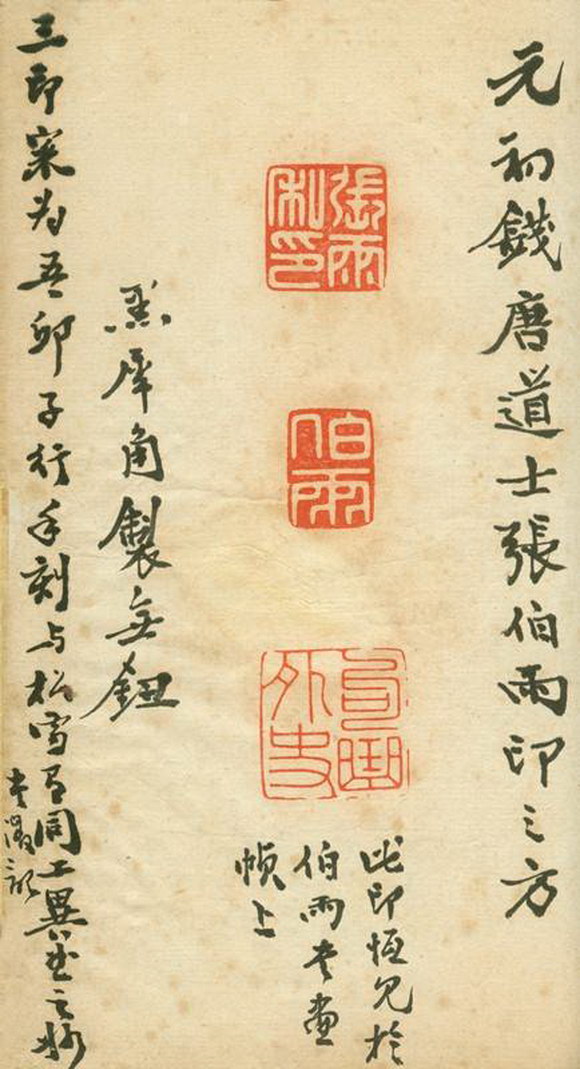 元初錢唐道士張伯雨印三方
張雨私印
伯雨
句曲外史
此印恆見於
伯雨書畫
幀上
黑犀角製無鈕
三印案为吾邱子行手刻与松雪有同工異曲之妙